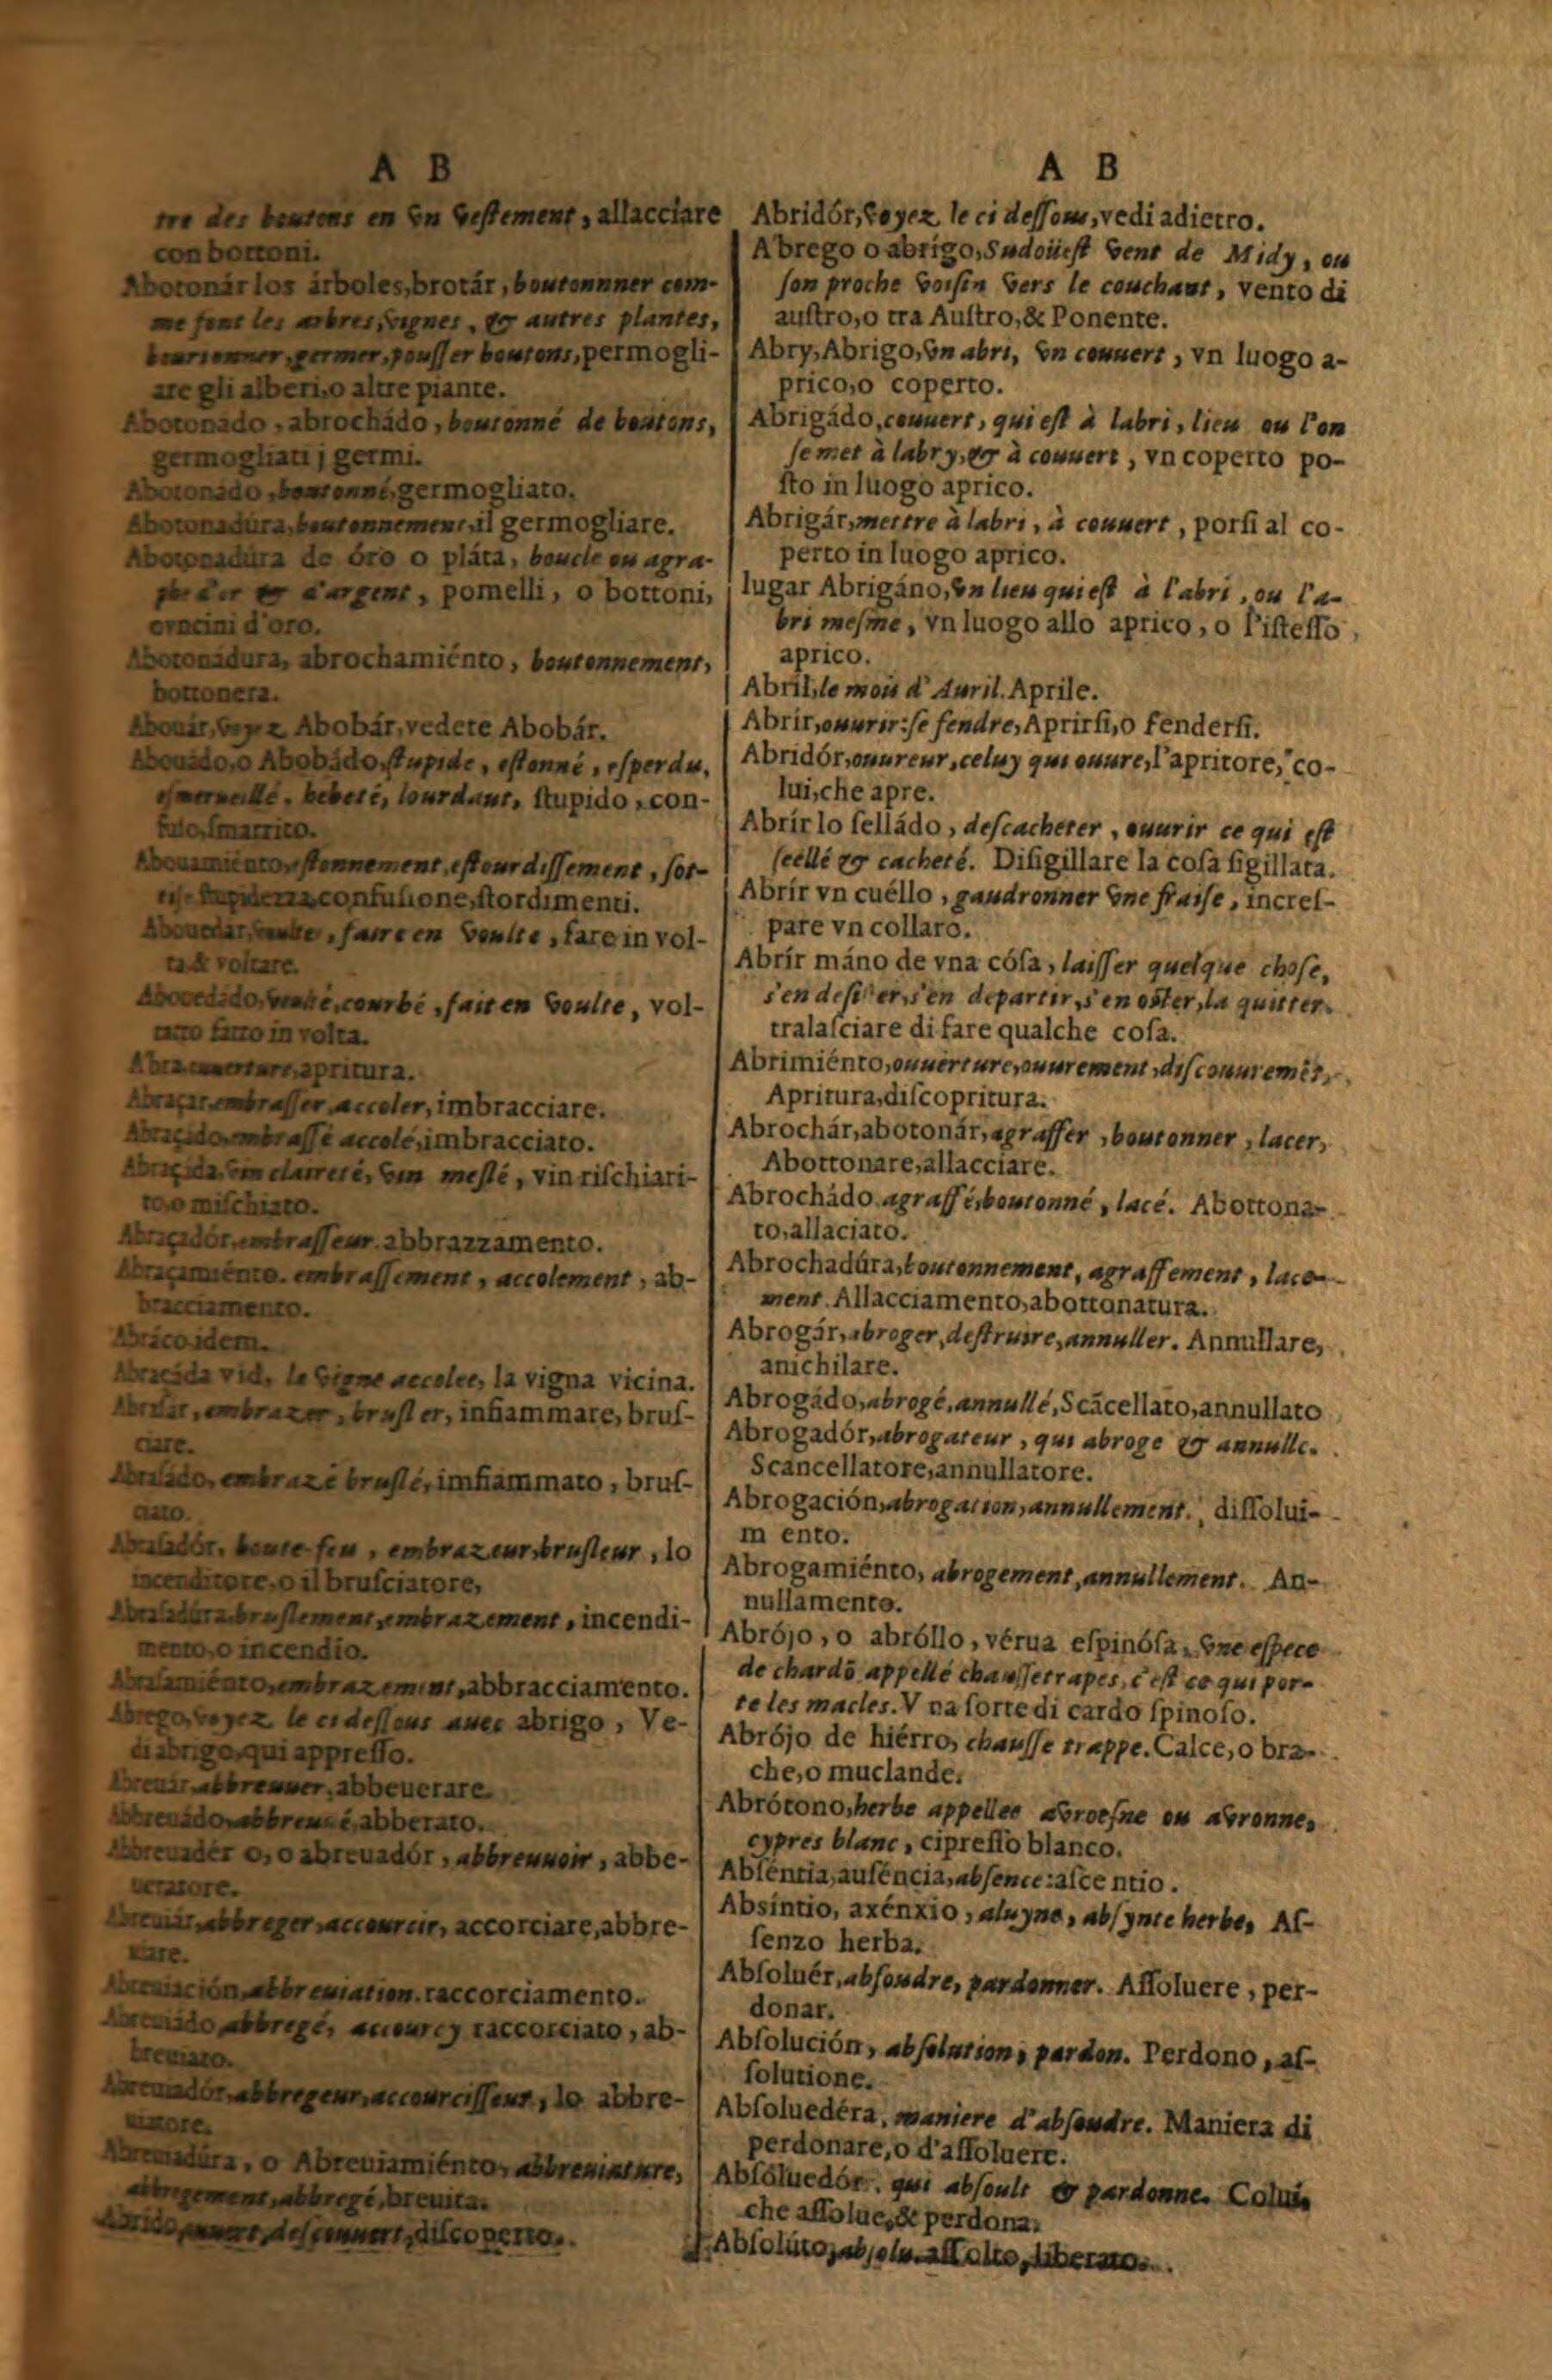 A B
tre des boutons en vn vestement, allacciare
con bottoni.
Abotonár los árboles, brotár, boutonnner com-
me font les arbres, vignes, & autres plantes,
bourionner, germer, pouſſer boutons, permogli-
are gli alberi, o altre piante.
Abotonado, abrochádo, boutonné de boutons,
germogliati j germi.
Abotonádo, boutonné, germogliato.
Abotonadúra, boutonnement, il germogliare.
Abotonadúra de óro o pláta, boucle ou agra-
phe d'or & d'argent, pomelli, o bottoni,
oncini d'oro.
Abotonadura, abrochamiénto, boutonnement,
bottonera.
Abouár, voyez Abobár, vedete Abobár.
Abouádo, o Abobádo, ſtupide, eſtonné, eſperdu,
eſmerueillé, hebeté, lourdaut, ſtupido, con-
fuſo, ſmarrito.
Abouamiénto, eſtonnement, eſtourdiſſement, ſot-
tiſe ſtupidezza, confuſione, ſtordimenti.
Abouedar, vouter, faire en voulte, fare in vol-
ta & voltare.
Abouedádo, vouté, courbé, fait en voulte, vol-
tato fatto in volta.
Abra, ouuerture, apritura.
Abraçar, embraſſer, accoler, imbracciare.
Abraçádo, embraſſé accolé, imbracciato.
Abraçída, vin claireté, vin meſlé, vin riſchiari-
to, o miſchiato.
Abraçadór, embraſſeur. abbrazzamento.
Abraçamiénto. embraſſement, accolement, ab-
bracciamento.
Abráco. idem.
Abraçáda vid, la vigne accolee, la vigna vicina.
Abraſar, embrazer, bruſler, infiammare, bruſ-
ciare.
Abraſádo, embrazé bruſlé, imfiammato, bruſ-
ciato.
Abraſadór, boute-feu, embrazeur, bruſleur, lo
incenditore, o il bruſciatore,
Abraſadúra, bruſlement, embrazement, incendi-
mento, o incendio.
Abraſamiénto, embrazement, abbracciamento.
Abrego, voyez le ci deſſous auec abrigo, Ve-
di abrigo, qui appreſſo.
Abreuár, abbreuuer, abbeuerare.
Abbreuádo, abbreuué, abberato.
Abbreuadér o, o abreuadór, abbreuuoir, abbe-
ueratore.
Abreuiár, abbreger, accourcir, accorciare, abbre-
uiare.
Abreuiación, abbreuiation. raccorciamento.
Abreuiádo, abbregé, accourcy raccorciato, ab-
breuiato.
Abreuiadór, abbregeur, accourciſſeur, lo abbre-
uiatore.
Abreuiadúra, o Abreuiamiénto, abbreuiature,
abbregement, abbregé, breuita.
Abrído, ouuert, deſcouuert, diſcoperto.
A B
Abridór, voyez le ci deſſous, vedi adietro.
Abrego o abrígo, Sudoüeſt vent de Midy, ou
ſon proche voiſin vers le couchant, vento di
auſtro, o tra Auſtro, & Ponente.
Abry, Abrigo, vn abri, vn couuert, vn luogo a-
prico, o coperto.
Abrigádo, couuert, qui eſt à labri, lieu ou l'on
ſe met à labry, & à couuert, vn coperto po-
ſto in luogo aprico.
Abrigár, mettre à labri, à couuert, porſi al co-
perto in luogo aprico.
lugar Abrigáno, vn lieu qui eſt à l'abri, ou l'a-
bri meſme, vn luogo allo aprico, o l'iſteſſo
aprico.
Abríl, le mois d'Auril. Aprile.
Abrír, ouurir: ſe fendre, Aprirſi, o fenderſi.
Abridór, ouureur, celuy qui ouure, l'apritore, co-
lui, che apre.
Abrír lo ſelládo, deſcacheter, ouurir ce qui eſt
ſeellé & cacheté. Diſigillare la coſa ſigillata.
Abrír vn cuéllo, gaudronner vne fraiſe, increſ-
pare vn collaro.
Abrír máno de vna cóſa, laiſſer quelque choſe,
s'en deſiſter, s'en departir, s'en oſter, la quitter.
tralaſciare di fare qualche coſa.
Abrimiénto, ouuerture, ouurement, diſcouuremēt,
Apritura, diſcopritura.
Abrochár, abotonár, agraffer, boutonner, lacer,
Abottonare, allacciare.
Abrochádo. agraffé, boutonné, lacé. Abottona-
to, allaciato.
Abrochadúra, boutonnement, agraffement, lace-
ment. Allacciamento, abottonatura.
Abrogár, abroger, deſtruire, annuller. Annullare,
anichilare.
Abrogádo, abrogé, annullé, Scācellato, annullato
Abrogadór, abrogateur, qui abroge & annulle.
Scancellatore, annullatore.
Abrogación, abrogation, annullement. diſſolui-
m ento.
Abrogamiénto, abrogement, annullement. An-
nullamento.
Abrójo, o abróllo, vérua eſpinóſa, vne eſpece
de chardō appellé chauſſetrapes, c'eſt ce qui por-
te les macles. V na ſorte di cardo ſpinoſo.
Abrójo de hiérro, chauſſe trappe. Calce, o bra-
che, o muclande.
Abrótono, herbe appellee avroeſne ou avronne,
cypres blanc, cipreſſo blanco.
Abſéntia, auſéncia, abſence: aſce ntio.
Absíntio, axénxio, aluyne, abſynte herbe, Aſ-
ſenzo herba.
Abſoluér, abſoudre, pardonner. Aſſoluere, per-
donar.
Abſolución, abſolution, pardon. Perdono, aſ-
ſolutione.
Abſoluedéra, maniere d'abſoudre. Maniera di
perdonare, o d'aſſoluere.
Abſóluedór, qui abſoult & pardonne. Colui,
che aſſolue, & perdona.
Abſolúto, abſolu. aſſolto, liberato.